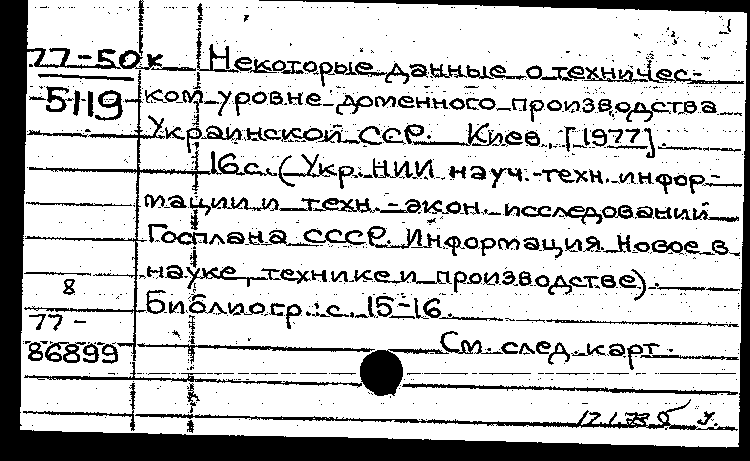 77-50к Некоторые данные о техничес-
5119 ком уровне доменного производства
Украинской ССР. Киев, [1977].
16с. (Укр. НИИ науч.-техн. инфор-
мации и техн.-экон. исследований
Госплана СССР. Информация. Новое в
науке, технике и производстве).
8 Библиогр.: с. 15-16.
77-
86899 См. след. карт.